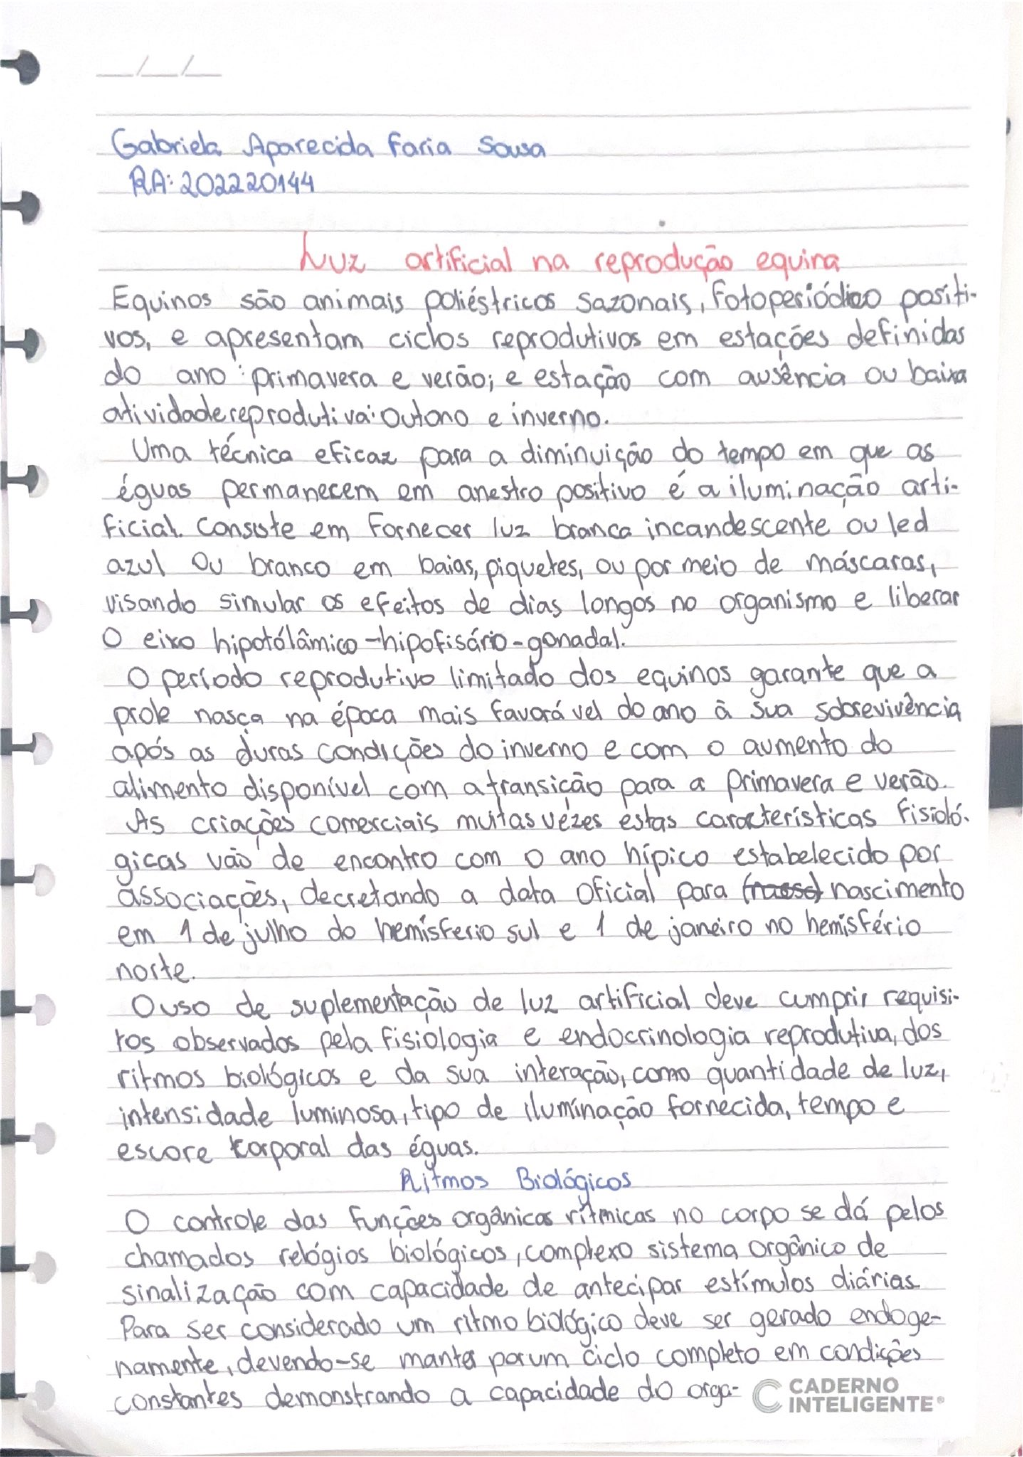 __/__/__
Gabriela Aparecida Faria Sousa
RA: 202220144
Luz artificial na reprodução equina
Equinos são animais poliéstricos sazonais, fotoperiódico positi-
vos, e apresentam ciclos reprodutivos em estações definidas
do ano: primavera e verão; e estação com ausência ou baixa
atividade reprodutiva: outono e inverno.
Uma técnica eficaz para a diminuição do tempo em que as
éguas permanecem em anestro positivo é a iluminação arti-
ficial. Consiste em fornecer luz branca incandescente ou led
azul ou branco em baias, piquetes, ou por meio de máscaras,
visando simular os efeitos de dias longos no organismo e liberar
o eixo hipotólâmico-hipofisário-gonadal.
O período reprodutivo limitado dos equinos garante que a
prole nasça na época mais favorável do ano à sua sobrevivência
após as duras condições do inverno e com o aumento do
alimento disponível com a transição para a primavera e verão.
As criações comerciais muitas vezes estas características fisioló-
gicas vão de encontro com o ano hípico estabelecido por
associações, decretando a data oficial para nascimento
em 1 de julho do hemisferio sul e 1 de janeiro no hemisfério
norte.
O uso de suplementação de luz artificial deve cumprir requisi-
tos observados pela fisiologia e endocrinologia reprodutiva, dos
ritmos biológicos e da sua interação, como quantidade de luz,
intensidade luminosa, tipo de iluminação fornecida, tempo e
escore corporal das éguas.
Ritmos Biológicos
O controle das funções orgânicas rítmicas no corpo se dá pelos
chamados relógios biológicos, complexo sistema orgânico de
sinalização com capacidade de antecipar estímulos diárias.
Para ser considerado um ritmo biológico deve ser gerado endoge-
namente, devendo-se manter por um ciclo completo em condições
constantes demonstrando a capacidade do orga-
CADERNO
INTELIGENTE®